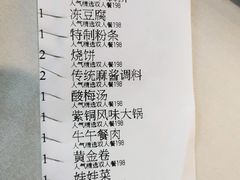 人气精选双人餐198
1 冻豆腐
人气精选双人餐198
1 特制粉条
人气精选双人餐198
2 烧饼
人气精选双人餐198
2 传统麻酱调料
人气精选双人餐198
1 酸梅汤
人气精选双人餐198
1 紫铜风味大锅
人气精选双人餐198
1 牛午餐肉
人气精选双人餐198
1 黄金卷
人气精选双人餐198
1 娃娃菜